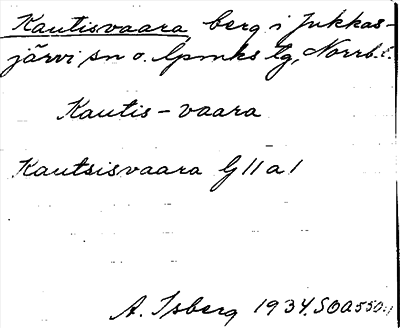 Kautisvaara berg i Jukkas-
järvi sn o. lpmks tg, Norrb. l.
Kautis-vaara
Kautsisvaara G 11 a 1
A. Isberg 1934. SOA550:1